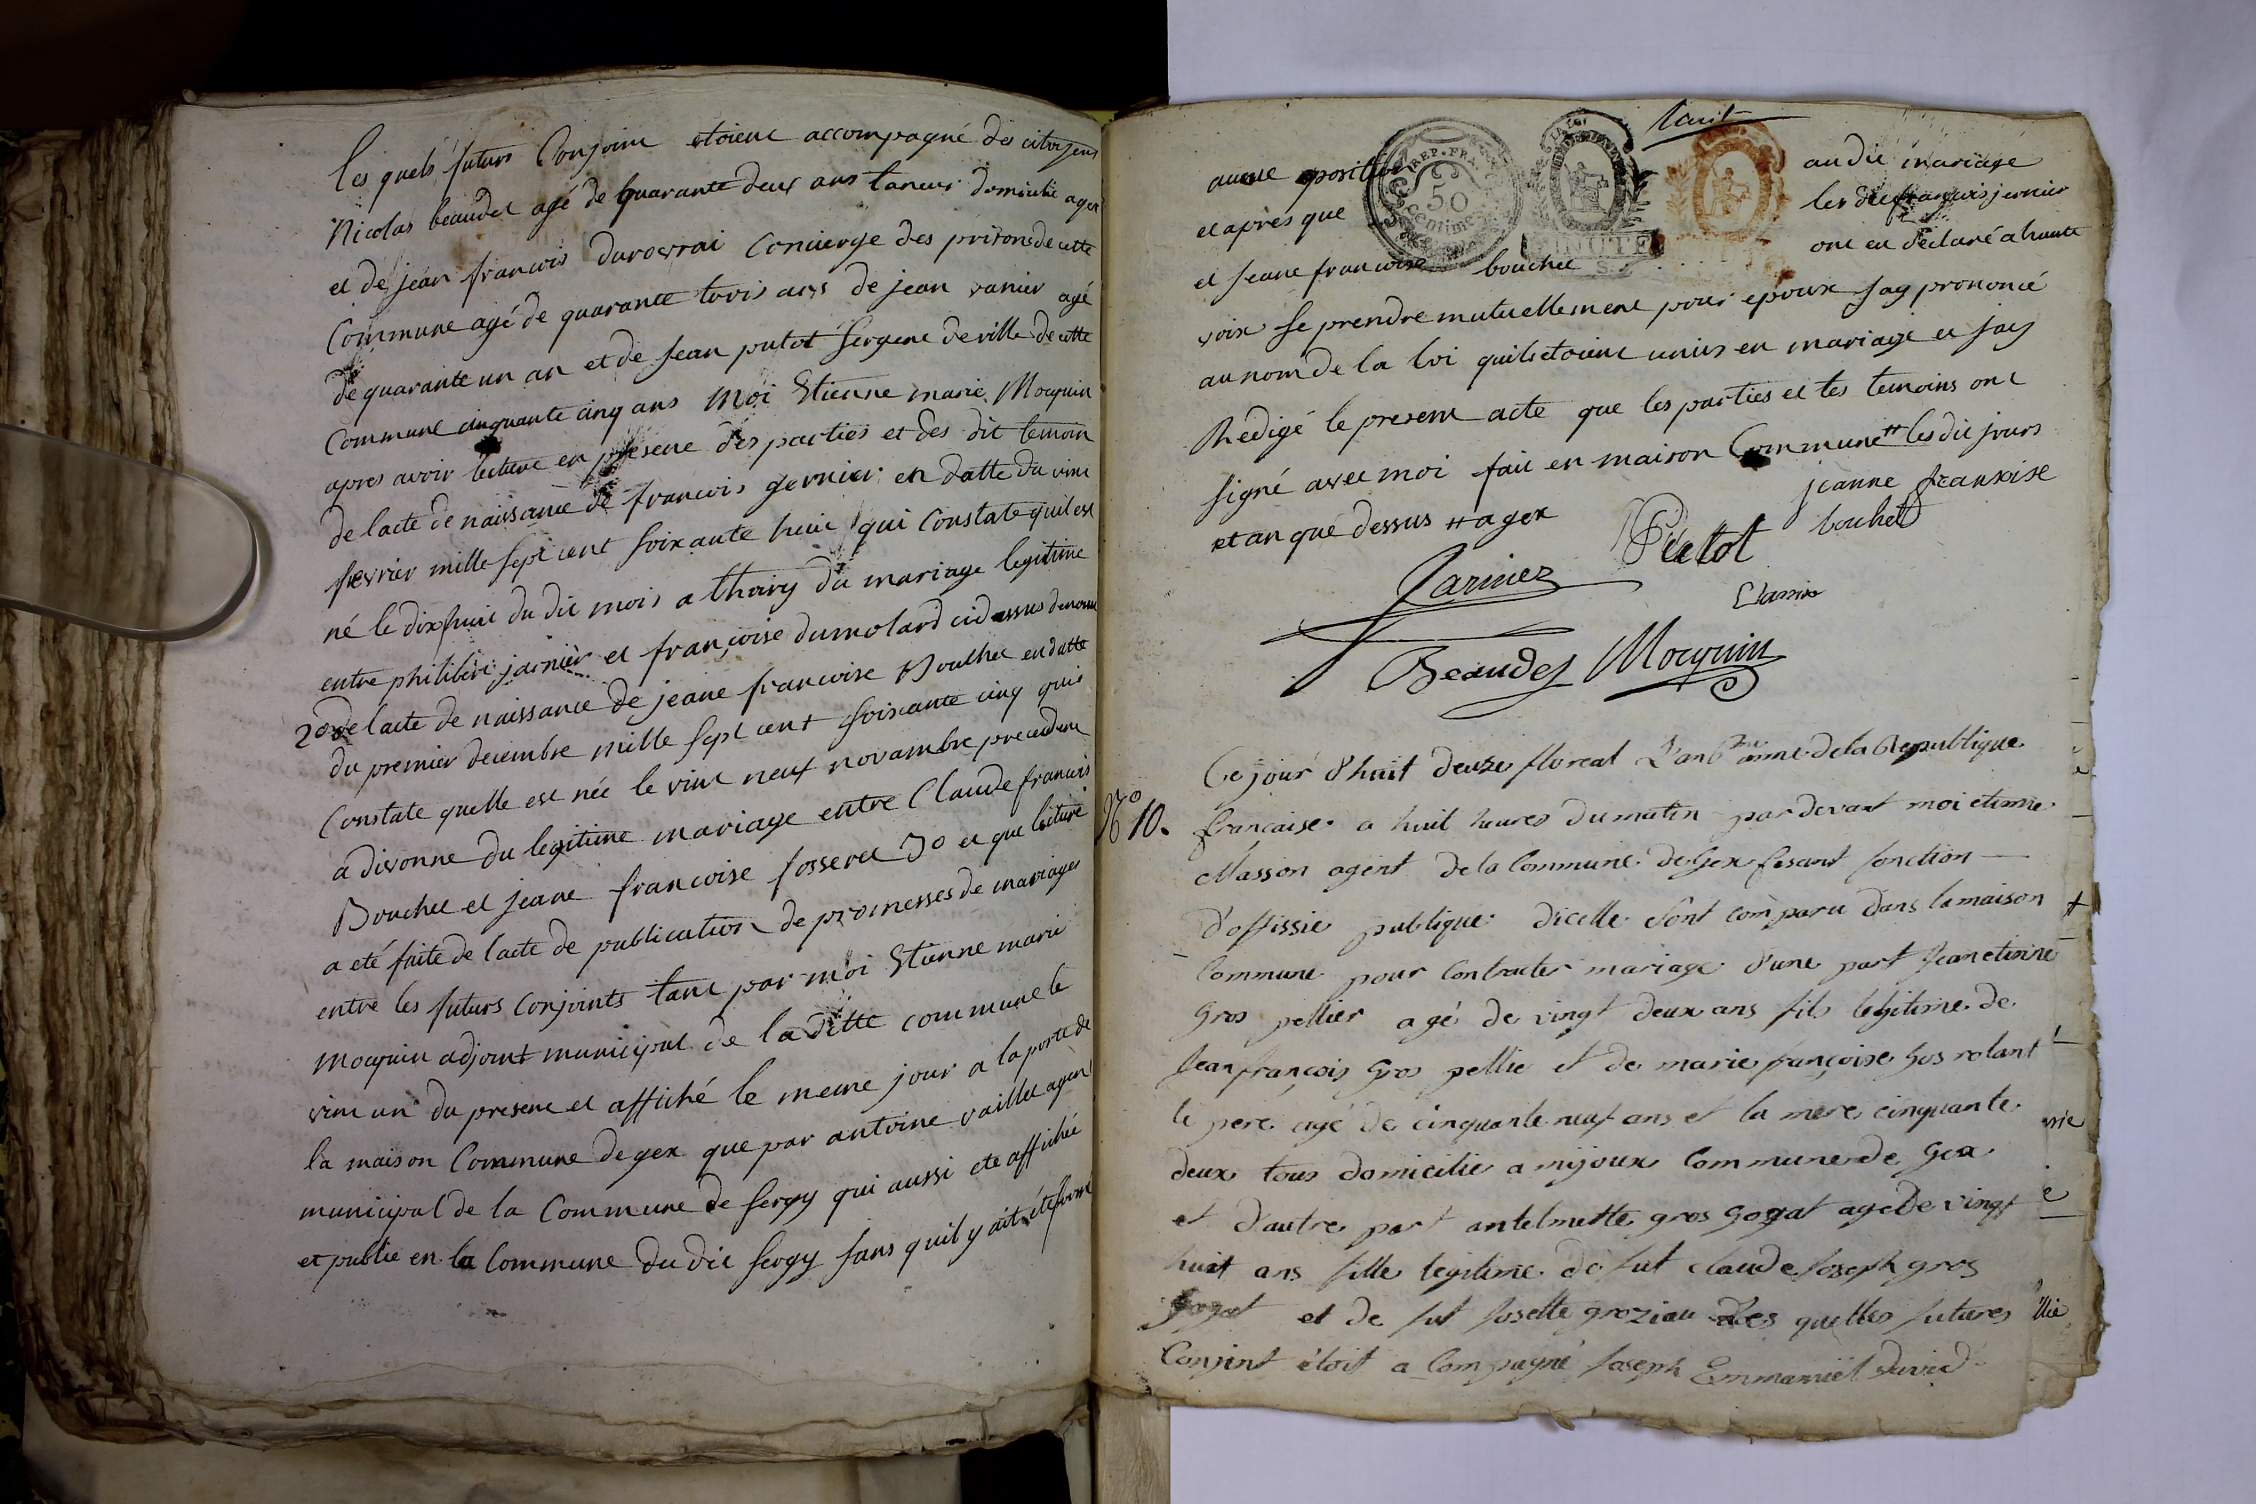 les quels futurs Conjoint etoient accompagné des citoyens
Nicolas beaudet agé de quarante deux ans taneur domicilié a gex
et de jean francois durovrai Concierge des prisons de cette
Commune agé de quarante trois ans de jean vanier agé
de quarante un an et de jean putot sergent de ville de cette
Commune cinquante cinq ans Moi Etienne marie Moquin
apres avoir lecture en presence des parties et des dit temoin
de lacte de naissance de francois gernier en datte du vint
fevrier mille sept cent soixante huit qui Constate quil est
né le dixhuit du dit mois a thoiry du mariage legitime
entre philibert jarnier et françoise dumolard cidessus denomé
2o de lacte de naissance de jeane francoise Bouchet en datte
du premier decembre mille sept cent soixante cinq qui
Constate quelle est née le vint neuf novambre precedent
a divonne du legitime mariage entre Claude francois
Bouchet et jeane francoise fosseret 3o et que lecture
a eté faite de lacte de publication de promesses de mariages
entre les futurs conjoints tant par moi Etienne marie
moquin adjoint municipal de la ditte commune le
vint un du present et affiché le meme jour a la porte de
la maison Commune de gex que par antoine vaillet agent
municipal de la Commune de sergy qui aussi ete affichée
et publie en la Commune du dit sergy sans quil y ait été formé
huit
REP. FRA.
50
centimes
MINUTE
aucune opposition au dit mariage
et apres que les dit françois jernier
et jeane francoise bouchet ont eu déclaré a haute
voix se prendre mutuellement pour epoux jay prononcé
au nom de la loi quils etoient unis en mariage et jay
Redigé le present acte que les parties et les temoins ont
signé avec moi fait en maison Commune # les dit jours
et an que dessus # a gex
jeanne franxoise
bouchet
Putot
Beaudet Moquin
No 10.
Ce jour d'huit deuze floreal L'an 6me anné de la Republique
francaise a huit heures du matin pardevant moi etienne
Masson agent de la Commune de Gex fesant fonction
d'offissie publique dicelle Sont comparu dans la maison
Commune pour Contracter mariage d'une part Jean etienne
Gros pellier agé de vingt deux ans fils legitime de
Jean françois Gros pellie et de marie françoise Gos rolant
le pere agé de cinquante neuf ans et la mere cinquante
deux tous domicilie a mijoux Commune de Gex
et d'autre part antelmette gros Gogat age De vingt
huit ans fille legitime de fut claude Joseph gros
Gogat et de fut Josette groziau Les quelles futures
Conjint étoit a Compagné Joseph Emmanuël David